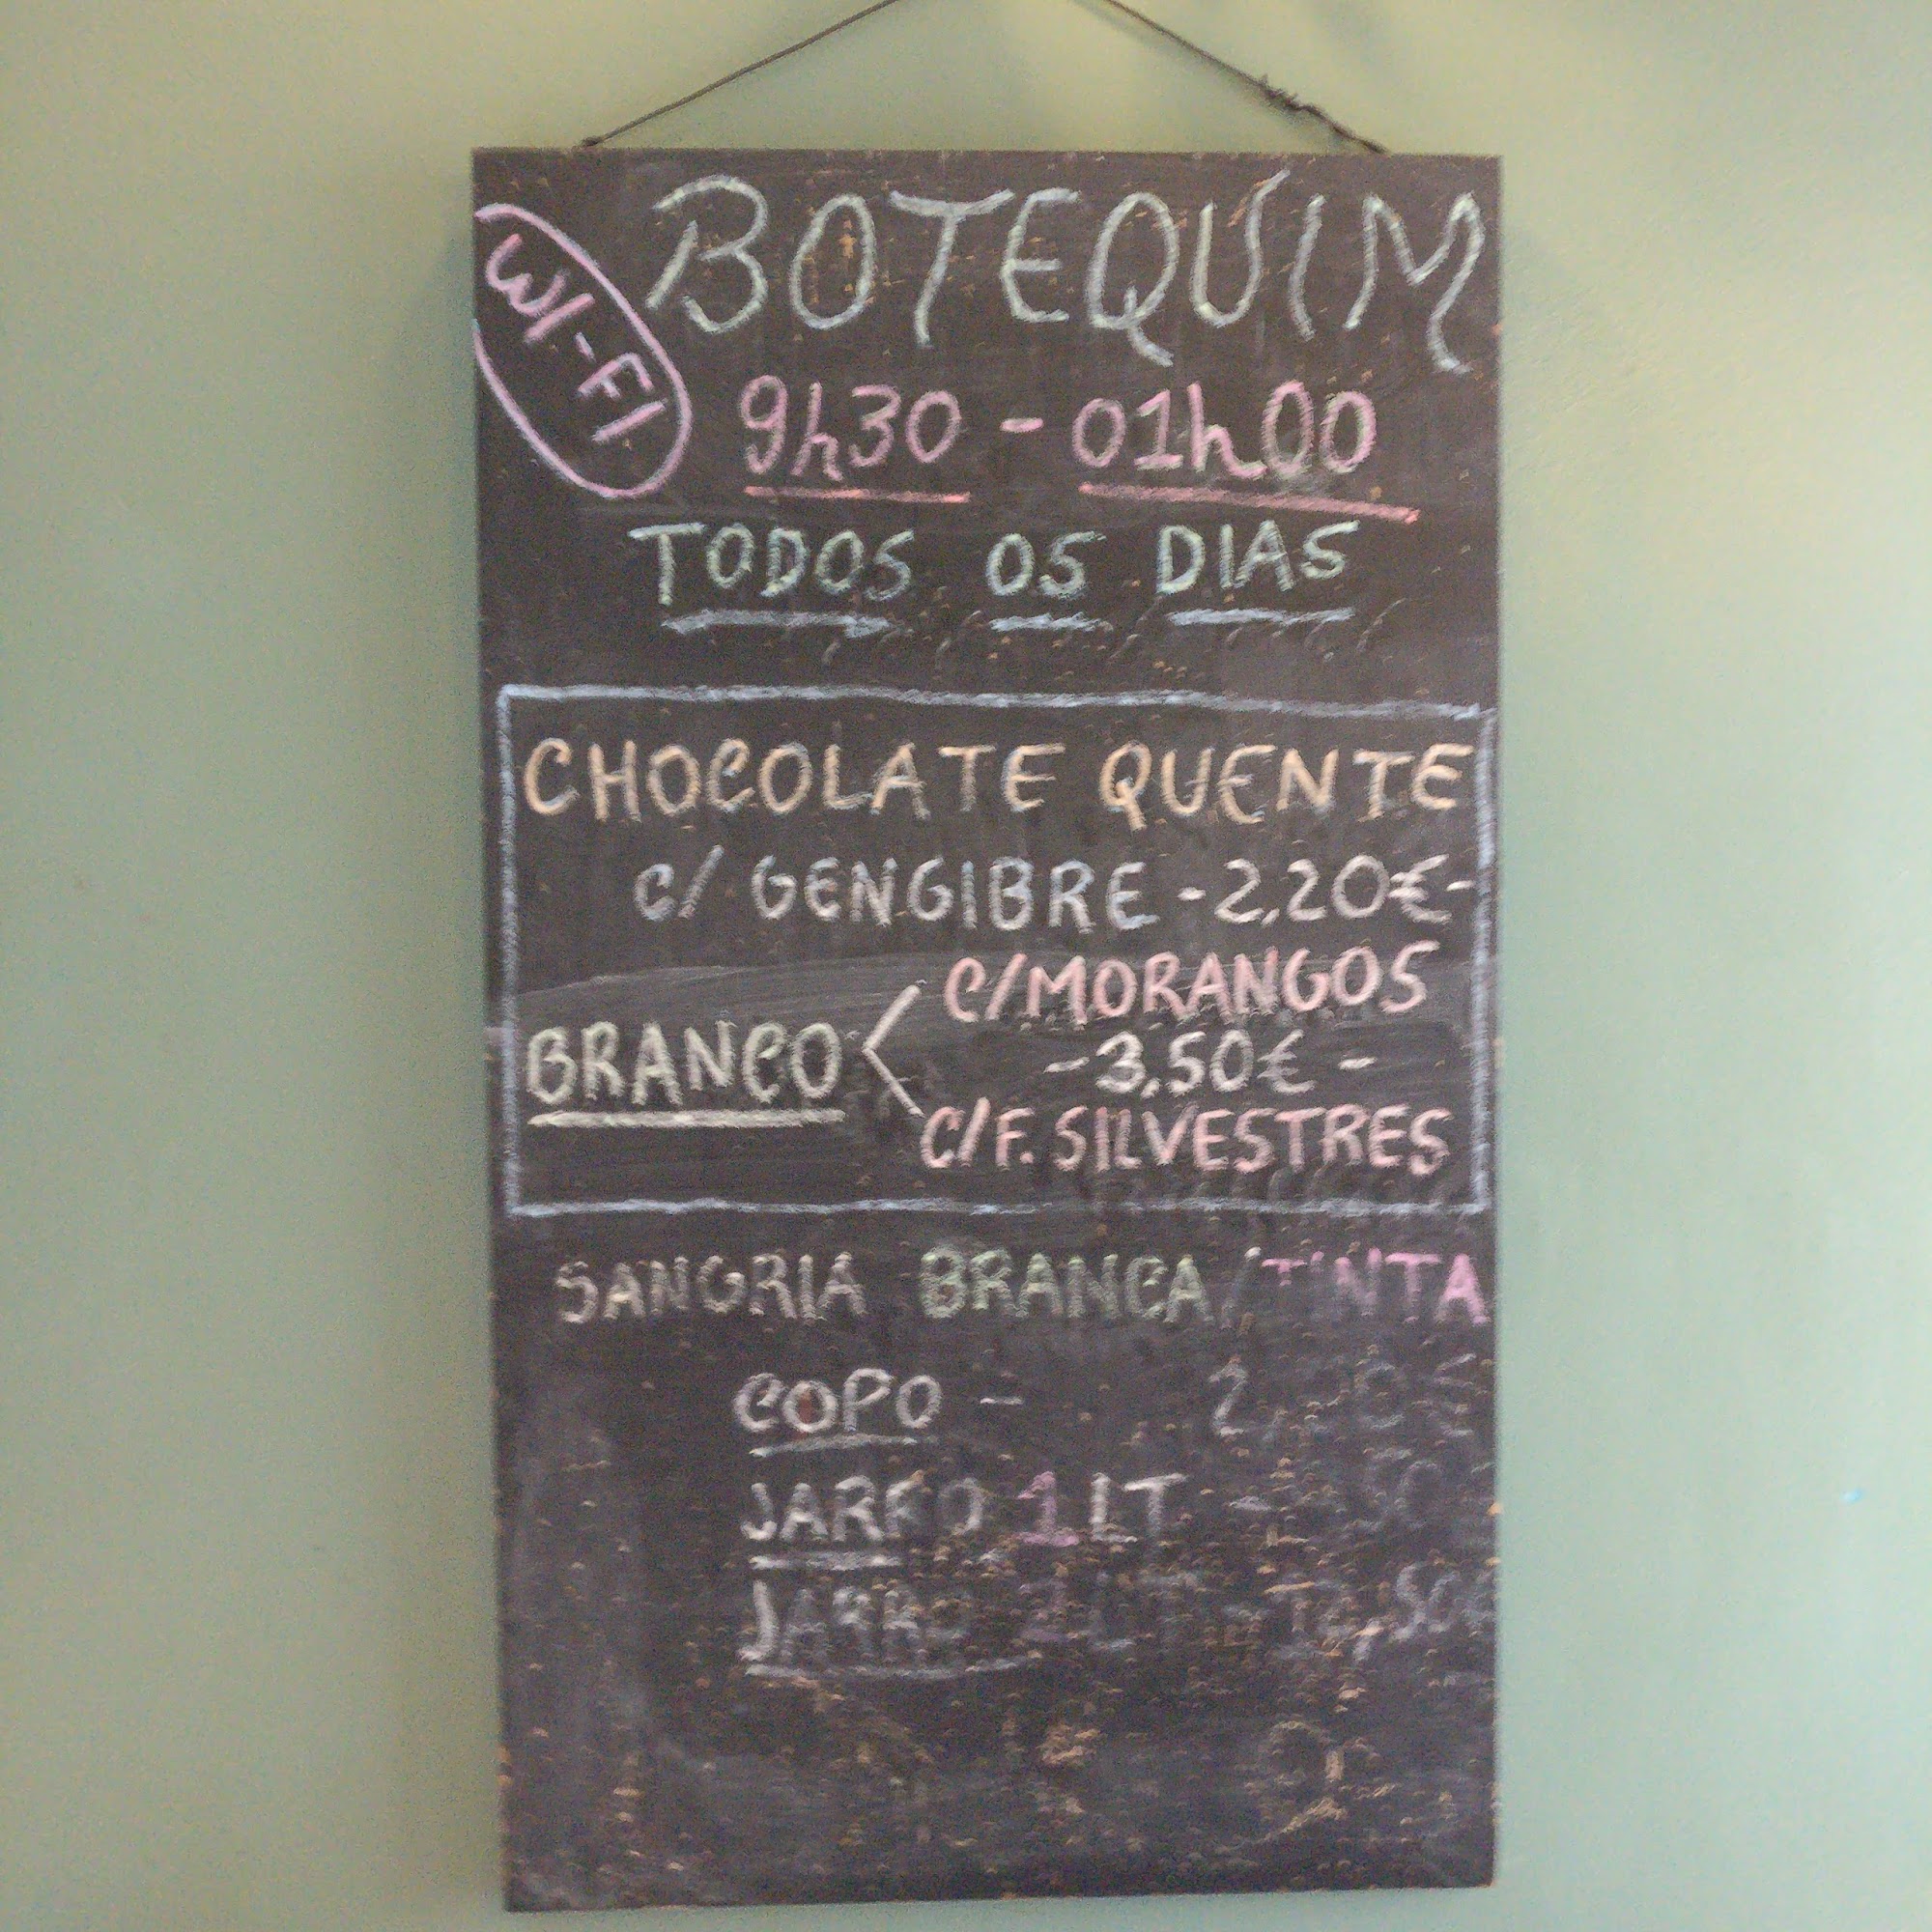 BOTEQUIM
WI-FI
9h30 - 01h00
TODOS OS DIAS
CHOCOLATE QUENTE
C/ GENGIBRE -2,20€-
C/MORANGOS
BRANCO
-3,50€ -
C/F. SILVESTRES
SANGRIA BRANCA/TINTA
COPO -
JARRO 1 LT -
JARRO 2 LT